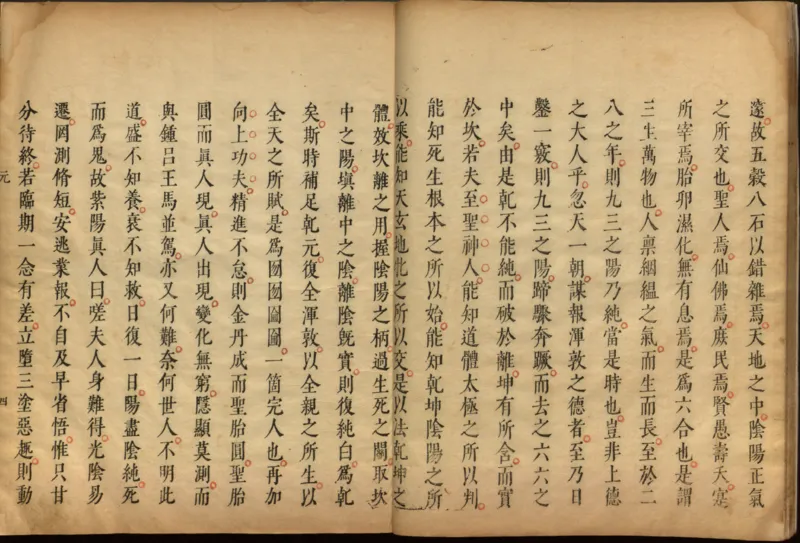 遠故五穀八石以錯雜焉天地之中陰陽正氣
之所交也聖人焉仙佛焉庶民焉賢愚壽夭寔
所宰焉胎卵濕化無有息焉是爲六合也是謂
三生萬物也人稟絪縕之氣而生而長至於二
八之年則九三之陽乃純當是時也豈非上德
之大人乎忽天一朝謀報渾敦之德者至乃日
鑿一竅則九三之陽蹄驟奔蹶而去之六六之
中矣由是乾不能純而破於離坤有所含而實
於坎若夫至聖神人能知道體太極之所以判
能知死生根本之所以始能知乾坤陰陽之所
以乘能知天玄地牝之所以交是以法乾坤之
體效坎離之用握陰陽之柄過生死之關取坎
中之陽塡離中之陰離陰旣實則復純白爲乾
矣斯時補足乾元復全渾敦以全親之所生以
全天之所賦是爲囫囫圇圇一箇完人也再加
向上功夫精進不怠則金丹成而聖胎圓聖胎
圓而眞人現眞人出現變化無窮隱顯莫測而
與鍾呂王馬並駕亦又何難奈何世人不明此
道盛不知養衰不知救日復一日陽盡陰純死
而爲鬼故紫陽眞人曰嗟夫人身難得光陰易
遷罔測脩短安逃業報不自及早省悟惟只甘
分待終若臨期一念有差立墮三塗惡趣則動
元
四